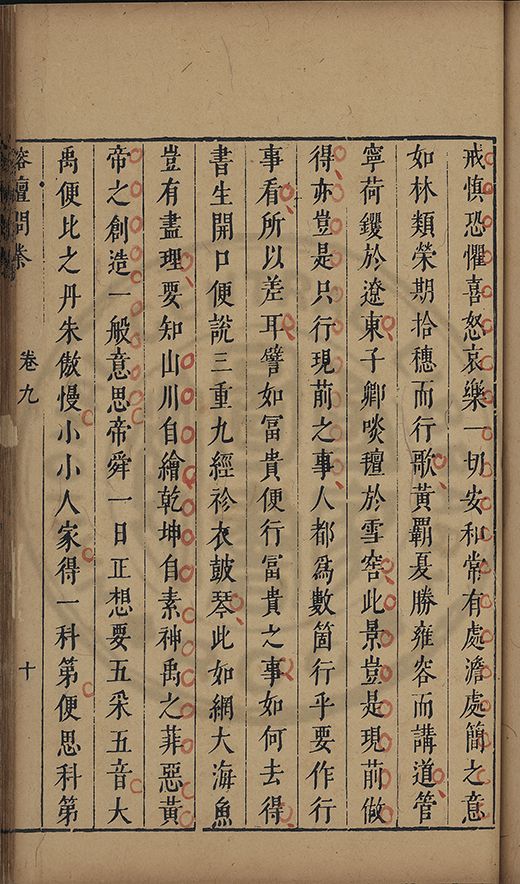 戒慎恐懼喜怒哀樂一切安和常有處澹處簡之意
如林類榮期拾穗而行歌黃覇夏勝雍容而講道管
寧荷钁於遼東子卿啖氊於雪窖此景豈是現前做
得亦豈是只行現前之事人都為數箇行乎要作行
事看所以差耳譬如冨貴便行冨貴之事如何去得
書生開口便說三重九經袗衣鼓琴此如網大海魚
豈有盡理要知山川自繪乾坤自素神禹之菲惡黃
帝之創造一般意思帝舜一日正想要五采五音大
禹便比之丹朱傲慢小小人家得一科第便思科第
榕壇問業
卷九
十